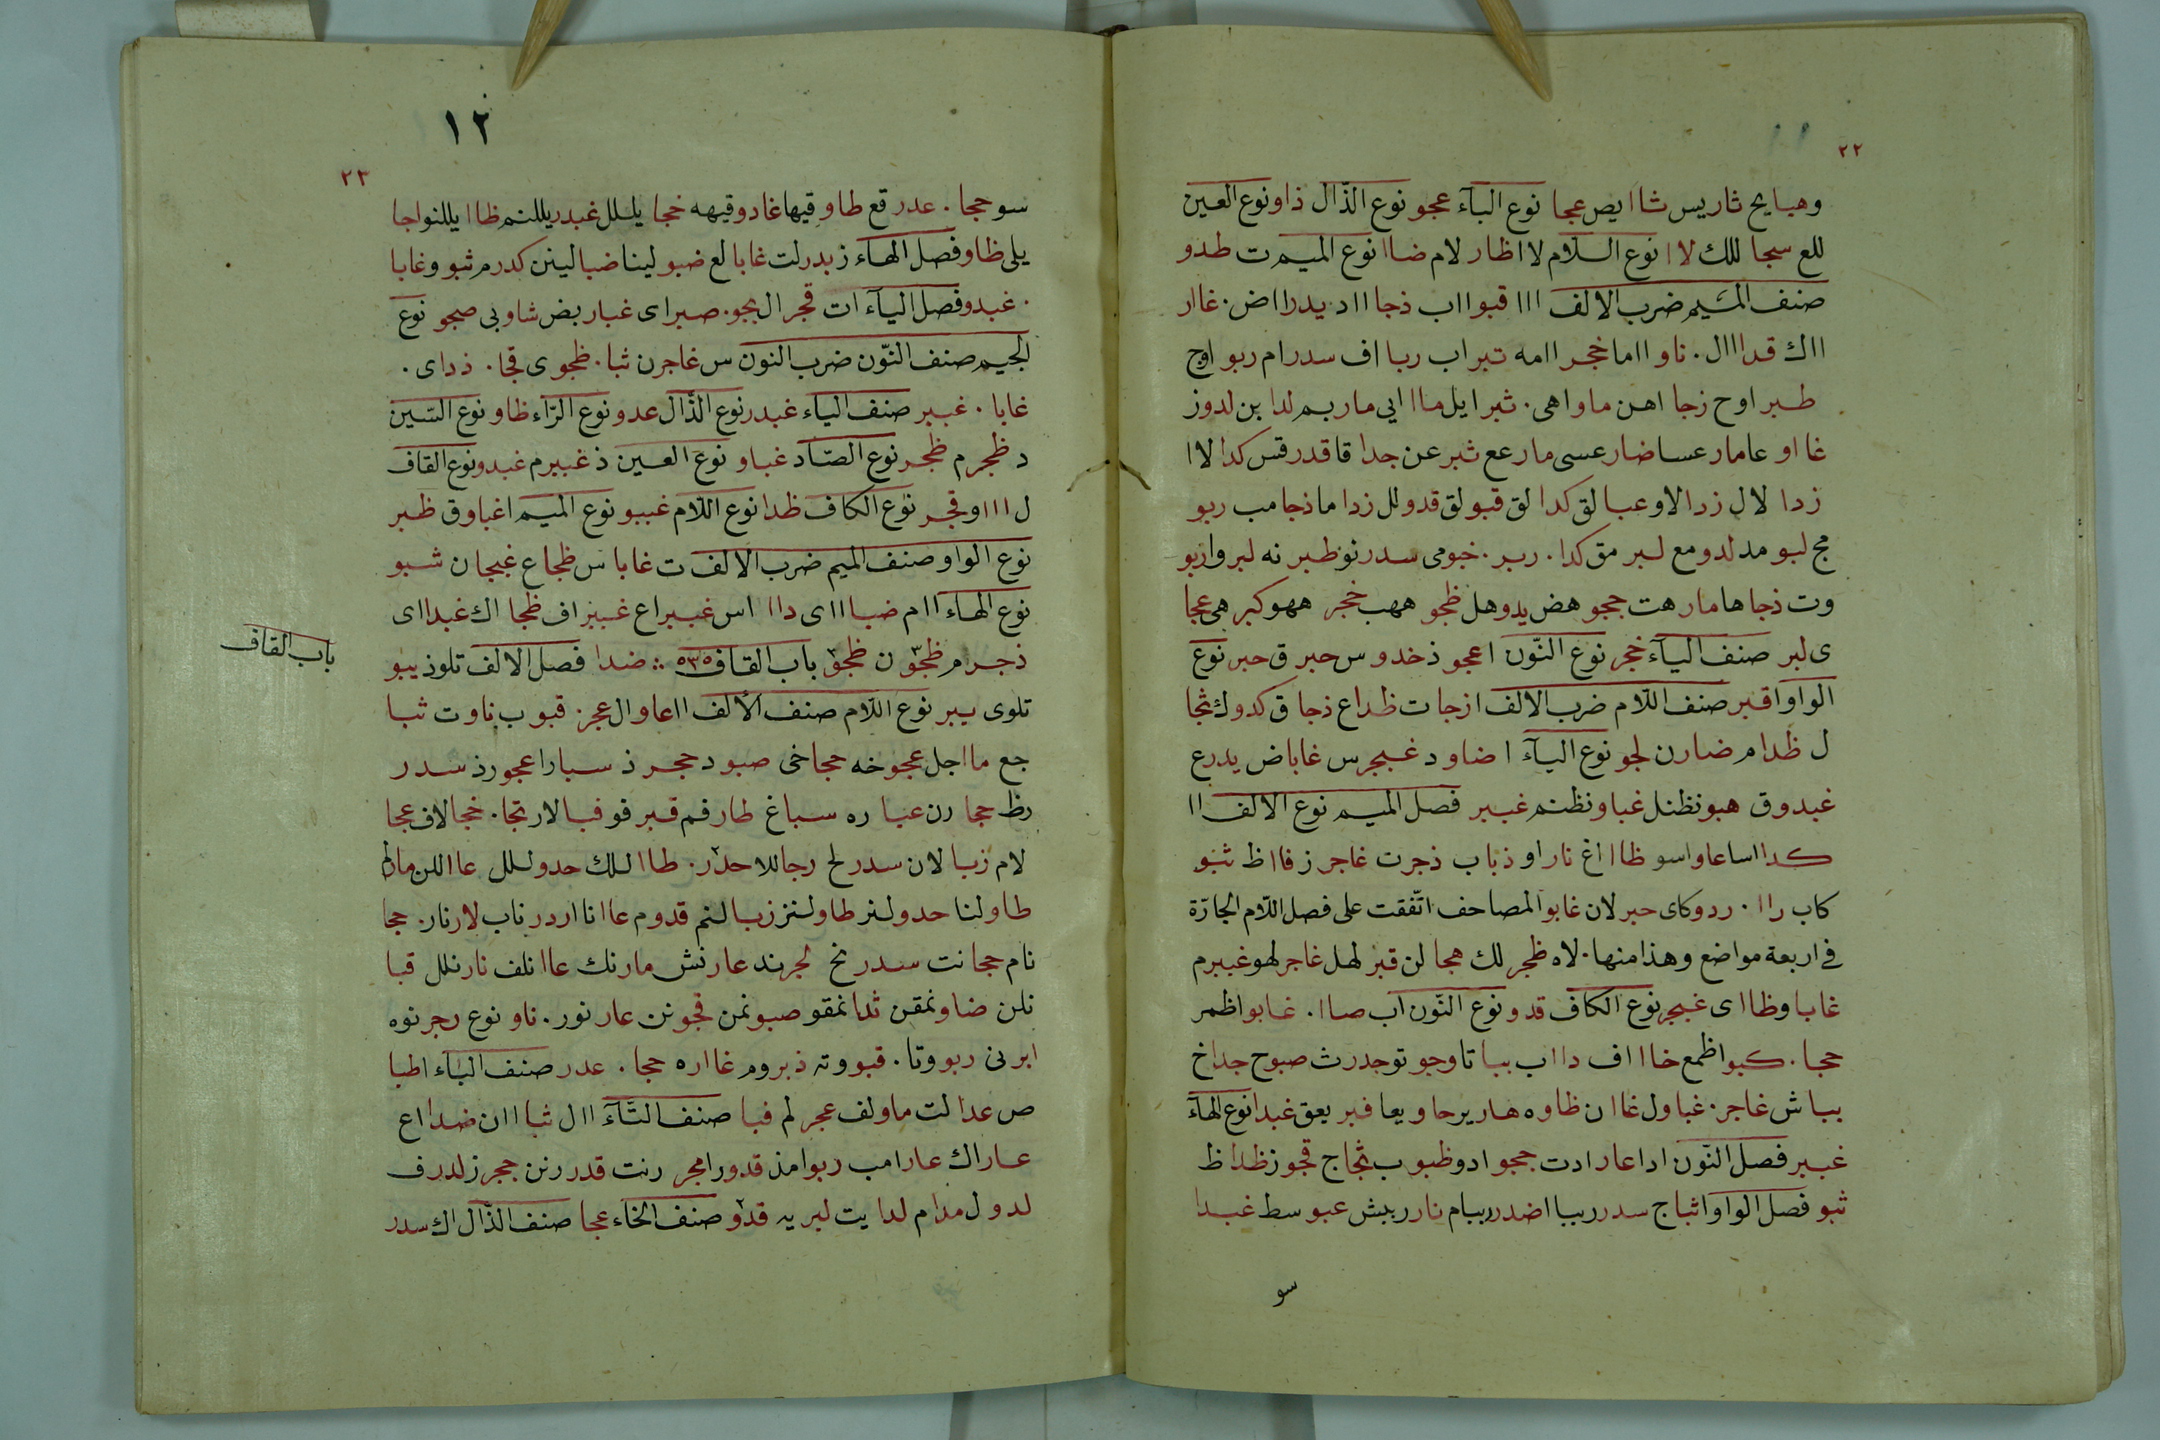 ٢٢
وهبايح ثاريس شاايص عجا نوع البآء عجو نوع الذّال ذاونوع العين
للع سجا للك لاا نوع السلّام لااظار لام ضاا نوع الميم ت طدو
صنف الميم ضرب الالف ااا قبوااب ذجااد يدرااض. غاار
ااك قدااال. ناوااما خجراامه تبراب ربااف سدرام ربو اوج
طبر اوح زجا اهن ماواهى. ثبرايل ماا ايى ماربم لدا بن لدوز
غااو عامار عسا ضار عسى مارعع ثبر عن جدا قا قدر قس كدا لاا
زدا لال زدا لاو عبا لق كدا لق قبو لق قدو لل زدا ما ذجا مب ربو
مج لبو مد لدو مع لبر مق كدا. ربر. خبو مى سدر نو طبر نه لبر وا زبو
وت ذجا ها مار هت ججو هض يدو هل ظجو ههب خجر ههو كبر هى عجا
ى لبر صنف اليآء خجر نوع النّون ا عجو ذ خدو س حبر ق حبر نوع
الواو ا قبر صنف اللّام ضرب الالف ا زجا ت ظدا ع ذجا ق كدو ك ثجا
ل ظدا م ضار ن لجو نوع اليآء ا ضاو د غبجر س غابا ض يدر ع
غبدو ق هبو نظنل غباو نظنم غبير فصل الميم نوع الالف اا
كدا اسا عاو اسو ظاا اغ نار او ذبا ب ذجر ت غاجر ز فاا ظ ثبو
كاب راا. ردو كاى حبر لان غابو المصاحف اتّفقت على فصل اللّام الجارّة
فى اربعة مواضع وهذا منها. لاه ظجر لك هجا لن قبر لهل غاجر لهو غبير م
غابا و ظاا ى غبجر نوع الكاف قدو نوع النّون اب صاا. غابو اظمر
حجا. كبو اظمع خاا اف داا ب ببا تا وجو تو جدر ث صبو ح جدا خ
ببا ش غاجر. غباو ل غاا ن ظاو ه هار يرحا ويعا فبر يعق غبدا نوع الهآء
غبير فصل النّون ادا عار ادت ججو ادو ظبو ب ثجا ج قجو ز ظدا ظ
ثبو فصل الواو ا ثبا ج سدر ربا اضدر ربام نار ربش عبو سط غبدا
سو
١٢
٢٣
سو حجا. عدر قع طاو قيها غادو قيهه خجا يلل غبدر يللنم ظاا يللنوا جا
يلى ظاو فصل الهاء ز بدر لت غابا لع ضبو لينا ضبا لينن كدر م ثبو و غابا
. غبدو فصل اليآء ات قجر ال بجو. صبر اى غبار بض شاو بى صجو نوع
الجيم صنف النّون ضرب النون س غاجر ن ثبا. ظجو ى قجا. ذدا ى.
غابا. غبير صنف الياء غبدر نوع الذّال عدو نوع الرّاء ظاو نوع السّين
د ظجر م ظجر نوع الصّاد غباو نوع العين ذ غبير م غبدو نوع القاف
ل ااا و قجر نوع الكاف ظدا نوع اللّام غببو نوع الميم ا غباو ق ظبر
نوع الواو صنف الميم ضرب الالف ت غابا س ظجا ع غبجا ن شبو
نوع الهاء اام ضبا ااى داا اس غبير اع غبيز اف ظجا اك غبدا اى
ذجر م ظجوّ ن ظجوّ باب القاف ٥٣٥ ضدا فصل الالف تلوذ يبو
تلوى يبر نوع اللّام صنف الألف ااعاو ال عجر. قبو ب ناو ت ثبا
جع ماا جل عجو خه حجا خى صبو د حجر ذ سبا را عجو رذ سدر
رظ حجا رن عبا ره سبا غ طار قم قبر قو فبا لار تجا. خجا لاف عجا
لام زبا لان سدر لح رجا للا حدر. طاا للك حدو للل عاا للن مار لم
طاو لنا حدو لنر طاو لنز زبا لنم قدو م عاانا اردر ناب لار نار. حجا
نام حجا نت سدر نخ لجر ند عار نش مار نك عاا نلف نار نلل قبا
نلن ضاو نمقن ثدا نمقو صبو نمن قجو نن عار نور. ناو نوع رجر نوه
ابر نى ربو وتا. قبو وته ذبر وم غاا ره حجا. عدر صنف الباء ا طبا
ص عدا لت ماو لف عجر لم فبا صنف التّاء اال ثبا اان ضدا اع
عار اك عار امب ربو امذ قدو رامجر رنت قدر رنن ججر ز لدر ف
لدو ل مدا م لدا يت لبر يه قدو صنف الخاء عجا صنف الذّال اك سدر
باب القاف